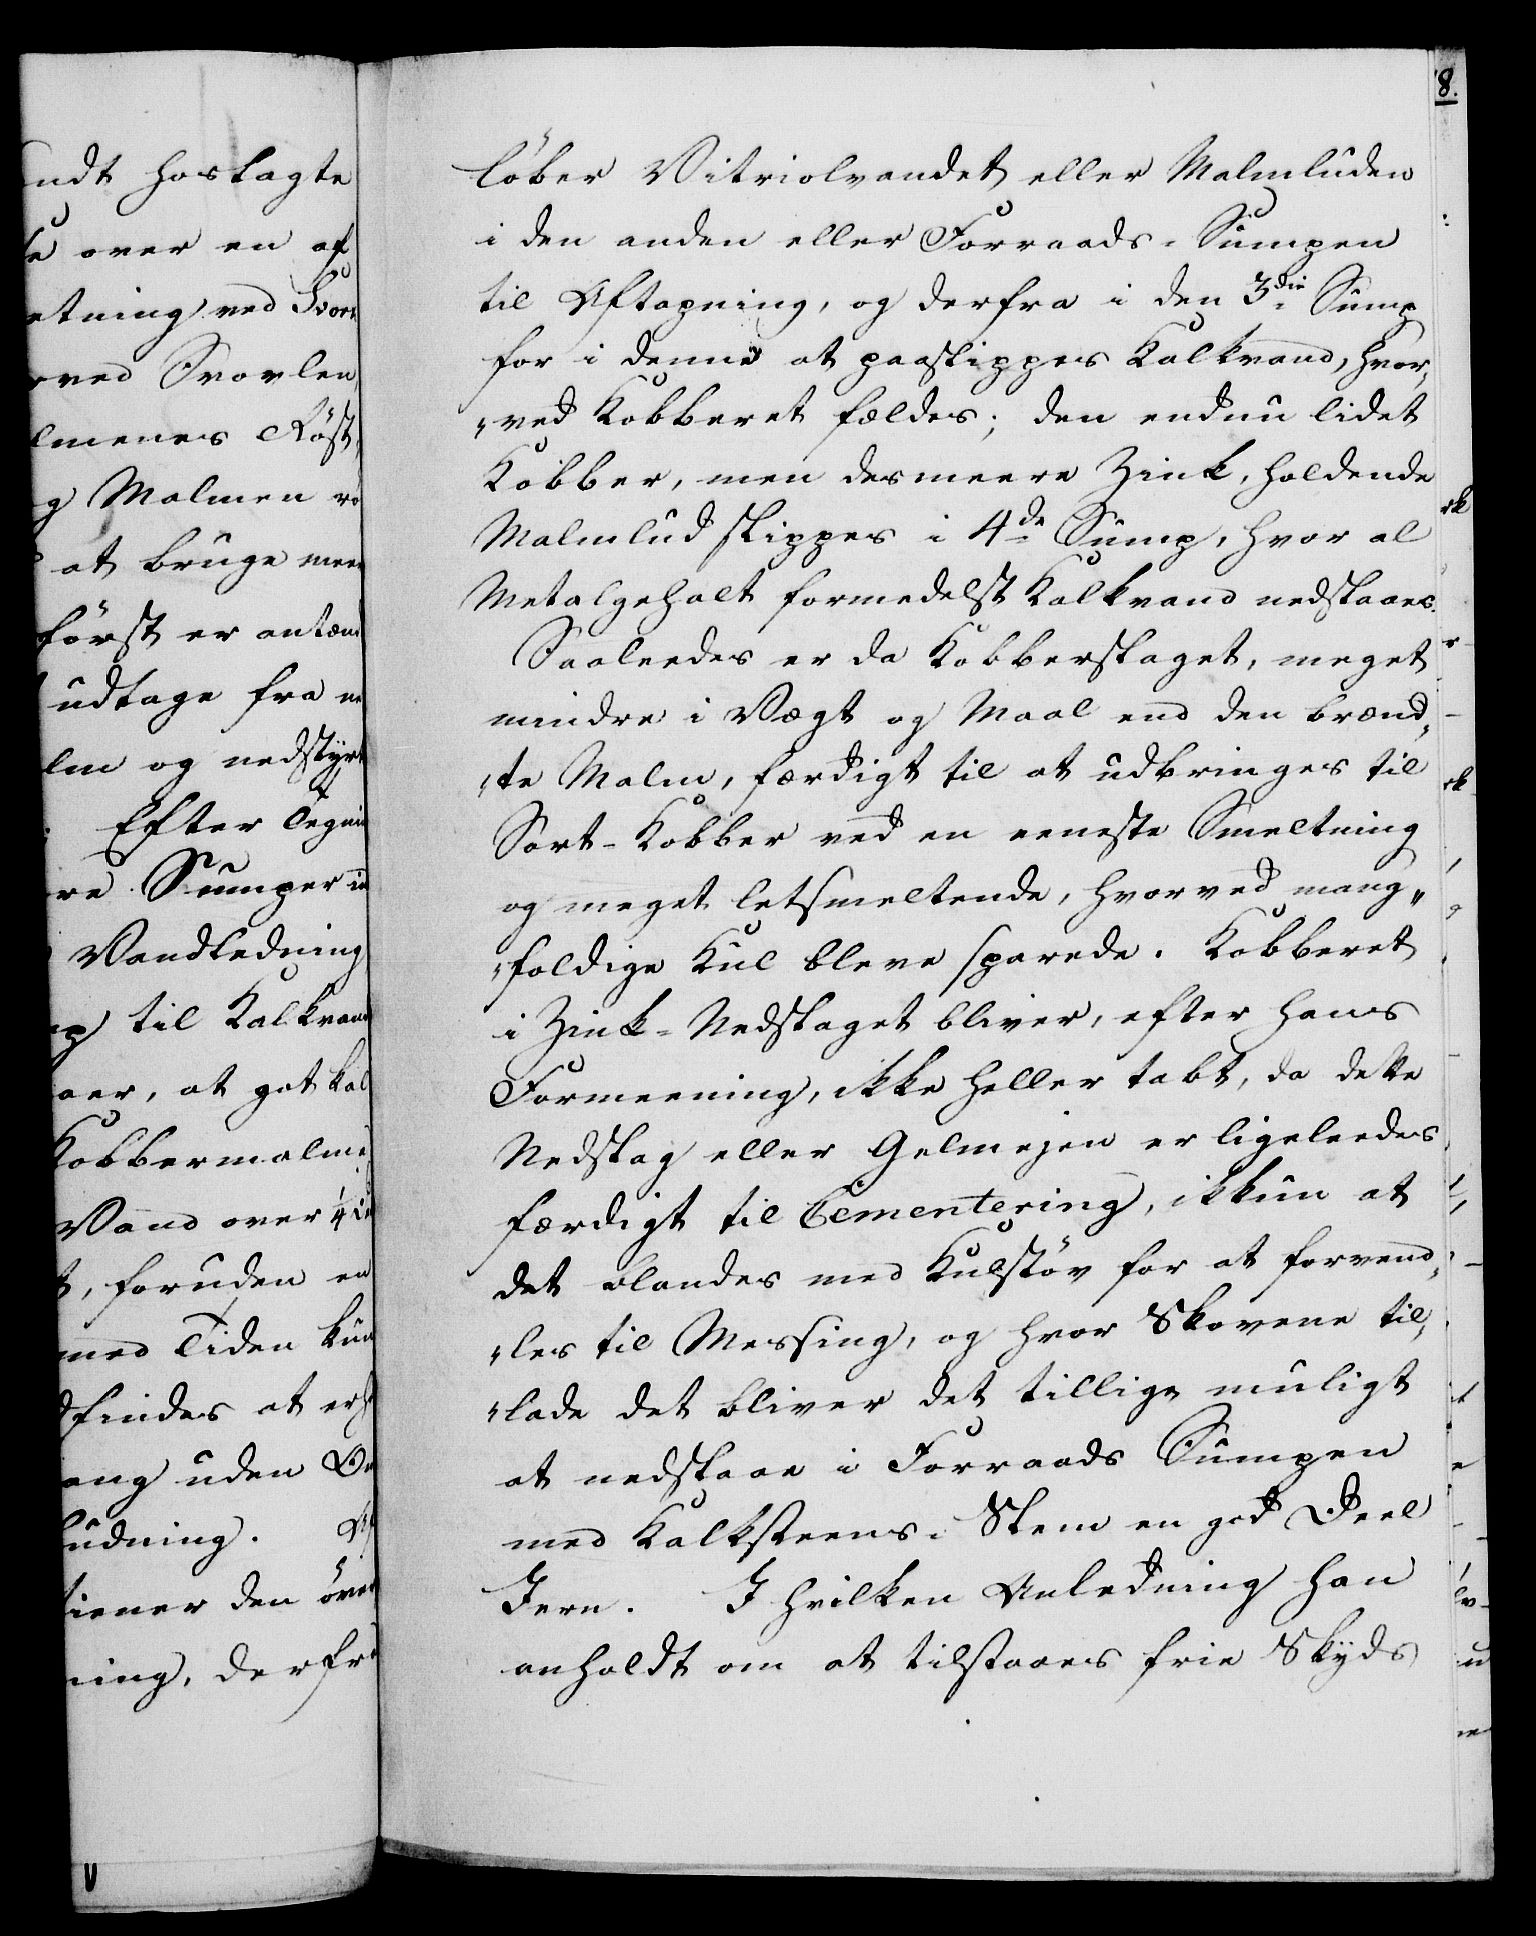 ndt hoslagte
e over en af
etning ved Svov
rved Svovlen
lmenes Röst,
g Malmen
at bruge meer
först er antæn
udtage fra
lm og nedstyrt
Efter Tegni
re Sumper i
Vandledning
p til Kalkvand
aer, at got kal
Kobbermalm
Vand over
, foruden en
med Tiden kun
findes at er
ang uden
ludning.
tiener den öve
ning, derfra
8.
löber Vitriolvandet eller Malmluden
i den anden eller Forraads-Sumpen
til Aftapning, og derfra i den 3die Sump
for i denne at paaslippes Kalkvand, hvor„
„ved Kobberet fældes; den endnu lidet
Kobber, men desmeere Zink, holdende
Malmlud slippes i 4de Sump, hvor al
Metalgehalt formedelst Kalkvand nedslaaes.
Saaleedes er da Kobberslaget, meget
mindre i Vægt og Maal end den brænd„
„te Malm, færdigt til at udbringes til
Sort-Kobber ved en eeneste Smeltning
og meget letsmeltende, hvorved mang„
„foldige Kul bleve sparede. Kobberet
i Zink-Nedslaget bliver, efter hans
Formeening, ikke heller tabt, da dette
Nedslag eller Gelmejen er ligeleedes
færdigt til Cementering, ikkun at
det blandes med Kulstöv for at forvend„
„les til Messing, og hvor Skovene til„
„lade det bliver det tillige muligt
at nedslaae i Forraads Sumpen
med Kalksteens-Skem en god Deel
Jern. I hvilken Anledning han
anholdt om at tilstaaes frie Skyds